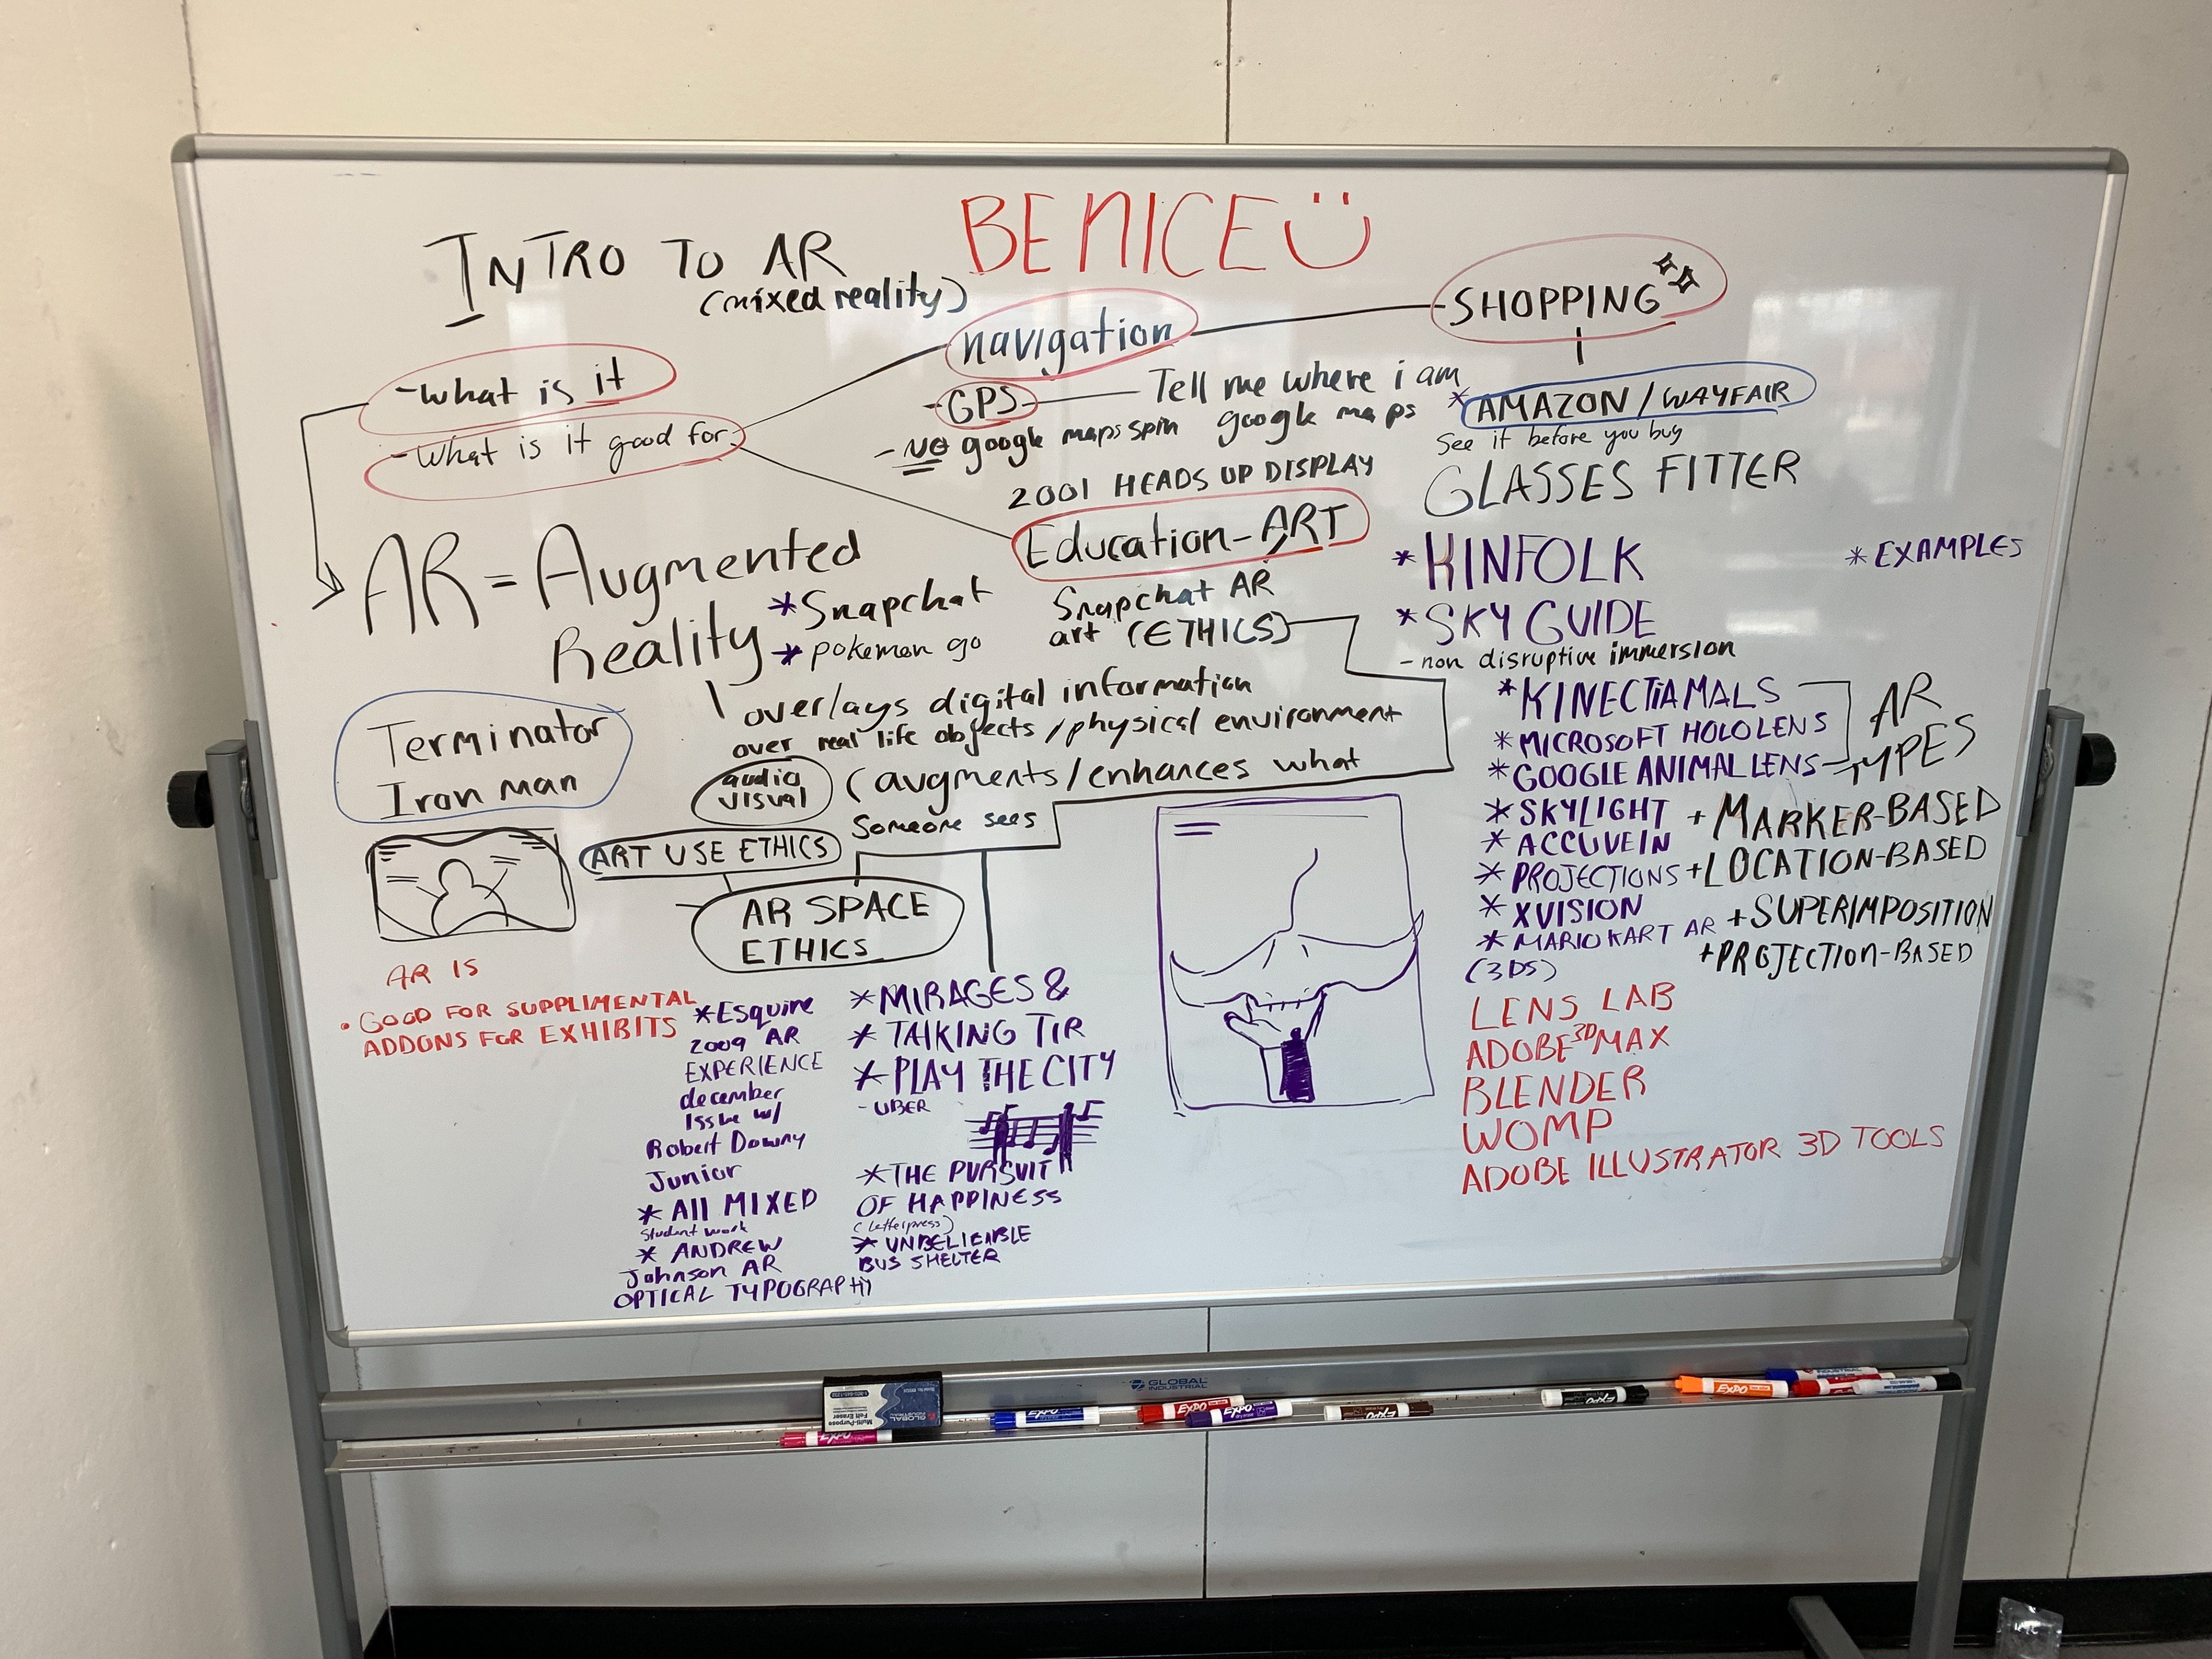 INTRO TO AR
(mixed reality)
BE NICE
- what is it
- What is it good for
navigation
- GPS - Tell me where i am
google maps
- NO google maps spin
2001 HEADS UP DISPLAY
Education - ART
Snapchat AR
art (ETHICS)
- SHOPPING
* AMAZON / WAYFAIR
See it before you buy
GLASSES FITTER
* KINFOLK
* EXAMPLES
* SKY GUIDE
- non disruptive immersion
AR = Augmented
Reality
* Snapchat
* pokemon go
overlays digital information
over real life objects / physical environment
audio
visual
(augments / enhances what
Someone sees
Terminator
Iron man
ART USE ETHICS
AR SPACE
ETHICS
AR IS
• GOOD FOR SUPPLIMENTAL
ADDONS FOR EXHIBITS
* Esquire
2009 AR
EXPERIENCE
december
Issue w/
Robert Downy
Junior
* All MIXED
Student work
* ANDREW
Johnson AR
OPTICAL TYPOGRAPHY
* MIRAGES &
* TALKING TIR
* PLAY THE CITY
- UBER
* THE PURSUIT
OF HAPPINESS
(letterpress)
* UNBELIEVABLE
BUS SHELTER
* KINECTIAMALS
* MICROSOFT HOLOLENS
* GOOGLE ANIMAL LENS
* SKYLIGHT
* ACCUVEIN
* PROJECTIONS
* XVISION
* MARIO KART AR
(3DS)
AR
TYPES
+ MARKER-BASED
+ LOCATION-BASED
+ SUPERIMPOSITION
+ PROJECTION-BASED
LENS LAB
ADOBE 3D MAX
BLENDER
WOMP
ADOBE ILLUSTRATOR 3D TOOLS
GLOBAL
INDUSTRIAL
GLOBAL
Multi-Purpose
Felt Eraser
EXPO
EXPO
EXPO
EXPO
EXPO
EXPO
EXPO